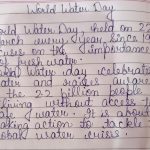 World Water Day
World Water Day, held on 22
March every year, since 19
focuses on the importance
of fresh water.
World water day celebrate
water and raises aware
the 2.2 billion people
living without access t
safe water. It is about
taking action to tackle
global water crisis.